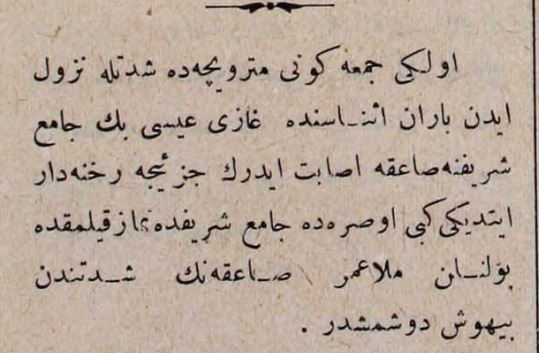 اولکی جمعه کونی متروپچه‌ده شدتله نزول
ایدن باران اثناسنده غازی عیسی بك جامع
شریفنه صاعقه اصابت ایدرك جزئیجه رخنه‌دار
ایتدیکی کبی اوصره‌ده جامع شریفده نماز قیلمقده
بولنان ملاعمر صاعقه‌نك شدتندن
بیهوش دوشمشدر .